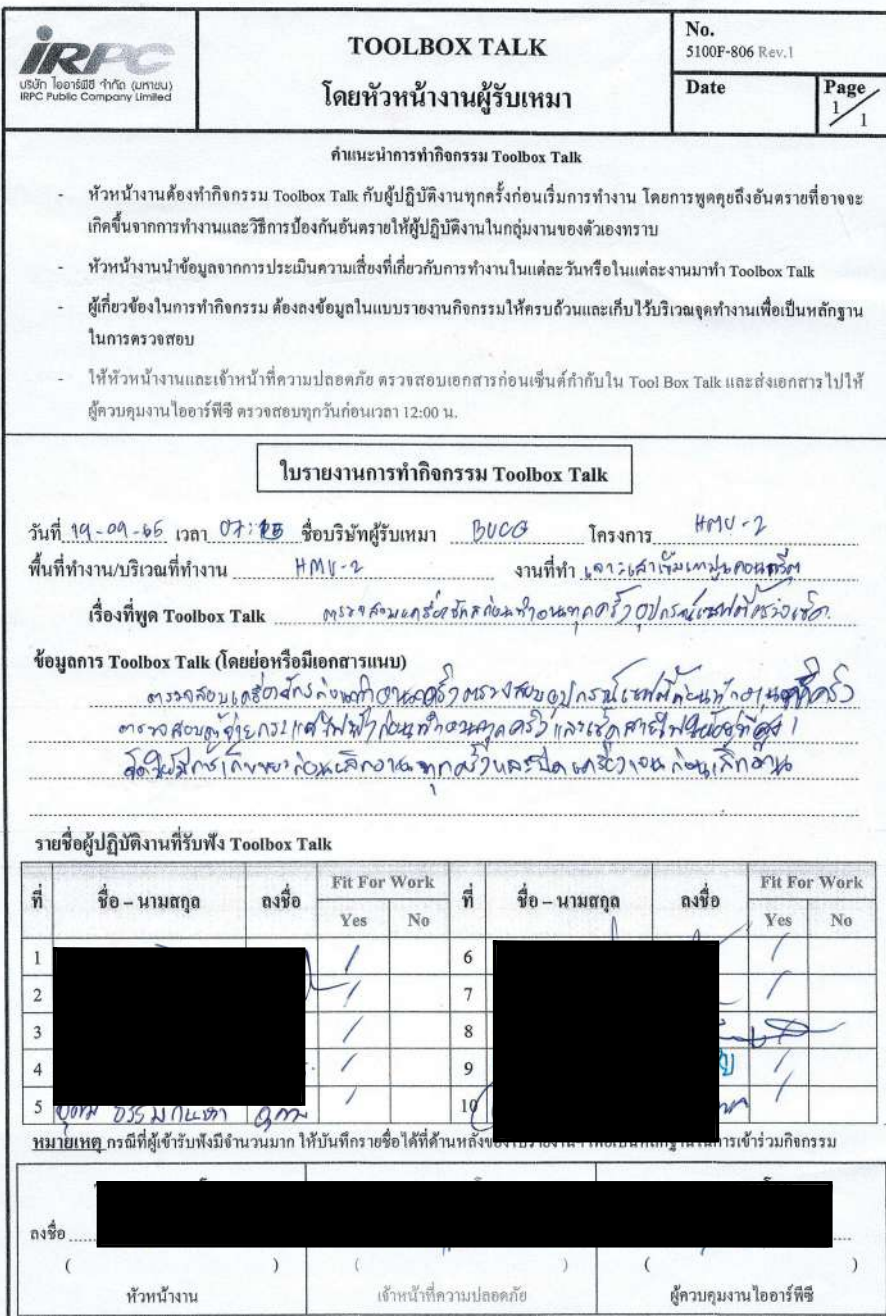 IRPC
บริษัท ไออาร์พีซี จำกัด (มหาชน)
IRPC Public Company Limited
TOOLBOX TALK
โดยหัวหน้างานผู้รับเหมา
No.
5100F-806 Rev.1
Date
Page
1/1
คำแนะนำการทำกิจกรรม Toolbox Talk
- หัวหน้างานต้องทำกิจกรรม Toolbox Talk กับผู้ปฏิบัติงานทุกครั้งก่อนเริ่มการทำงาน โดยการพูดคุยถึงอันตรายที่อาจจะ
เกิดขึ้นจากการทำงานและวิธีการป้องกันอันตรายให้ผู้ปฏิบัติงานในกลุ่มงานของตัวเองทราบ
- หัวหน้างานนำข้อมูลจากการประเมินความเสี่ยงที่เกี่ยวกับการทำงานในแต่ละวันหรือในแต่ละงานมาทำ Toolbox Talk
- ผู้เกี่ยวข้องในการทำกิจกรรม ต้องลงข้อมูลในแบบรายงานกิจกรรมให้ครบถ้วนและเก็บไว้บริเวณจุดทำงานเพื่อเป็นหลักฐาน
ในการตรวจสอบ
- ให้หัวหน้างานและเจ้าหน้าที่ความปลอดภัย ตรวจสอบเอกสารก่อนเซ็นต์กำกับใน Tool Box Talk และส่งเอกสารไปให้
ผู้ควบคุมงานไออาร์พีซี ตรวจสอบทุกวันก่อนเวลา 12:00 น.
ใบรายงานการทำกิจกรรม Toolbox Talk
วันที่ 19-09-65 เวลา 07: ชื่อบริษัทผู้รับเหมา BUCG โครงการ HMU-2
พื้นที่ทำงาน/บริเวณที่ทำงาน HMU-2 งานที่ทำ เจาะเสาเข็มเทปูนคอนกรีต
เรื่องที่พูด Toolbox Talk ตรวจสอบเครื่องจักรก่อนทำงานทุกครั้ง อุปกรณ์เซฟตี้
ข้อมูลการ Toolbox Talk (โดยย่อหรือมีเอกสารแนบ)
ตรวจสอบเครื่องจักรก่อนทำงานทุกครั้ง ตรวจสอบอุปกรณ์เซฟตี้ก่อนทำงานทุกครั้ง
ตรวจสอบตู้จ่ายกระแสไฟฟ้าก่อนทำงานทุกครั้ง และเช็คสายไฟให้อยู่ที่สูง
เก็บขยะก่อนเลิกงานทุกครั้งและปิดเครื่อง ก่อนเลิกงาน
รายชื่อผู้ปฏิบัติงานที่รับฟัง Toolbox Talk
ที่ ชื่อ – นามสกุล ลงชื่อ Fit For Work ที่ ชื่อ – นามสกุล ลงชื่อ Fit For Work
Yes No Yes No
1 / 6 /
2 / 7 /
3 / 8 /
4 / 9 /
5 / 10 /
หมายเหตุ กรณีที่ผู้เข้ารับฟังมีจำนวนมาก ให้บันทึกรายชื่อได้ที่ด้านหลัง การเข้าร่วมกิจกรรม
ลงชื่อ
( ) ( ) ( )
หัวหน้างาน เจ้าหน้าที่ความปลอดภัย ผู้ควบคุมงานไออาร์พีซี